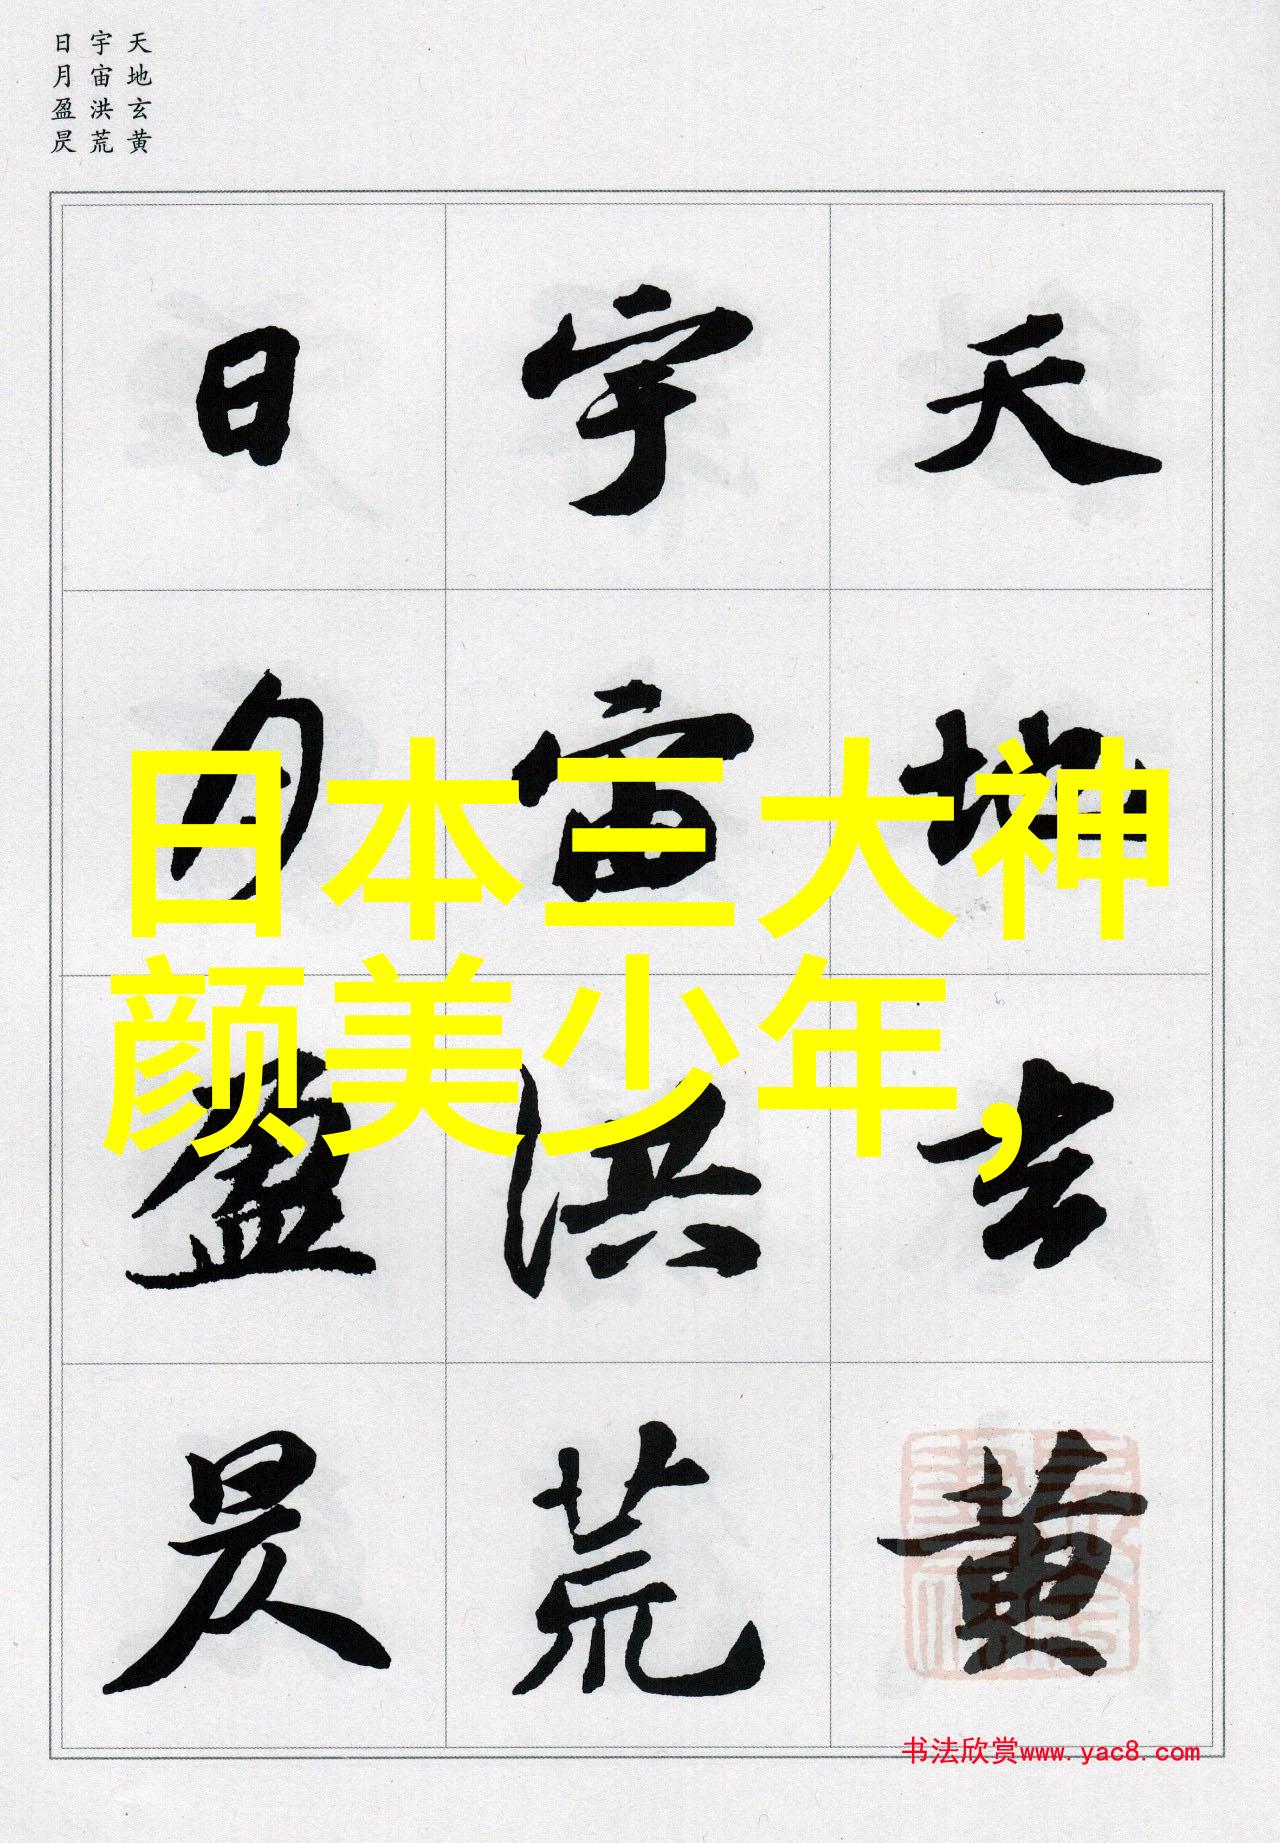 天地玄黄
宇宙洪荒
日月盈昃
天地玄黄
宇宙洪荒
日月盈昃
日本三大神
颜美少年,
书法欣赏www.yac8.com